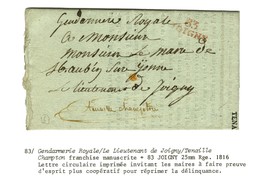 Gendarmerie Royale
83
JOIGNY
A Monsieur
Monsieur le Maire de
St aubin sur yonne
le lieutenant de Joigny
TENA
83/ Gendarmerie Royale/Le Lieutenant de Joigny/Tenaille
Champton franchise manuscrite + 83 JOIGNY 25mm Rge. 1816
Lettre circulaire imprimée invitant les maires à faire preuve
d'esprit plus coopératif pour réprimer la délinquance.